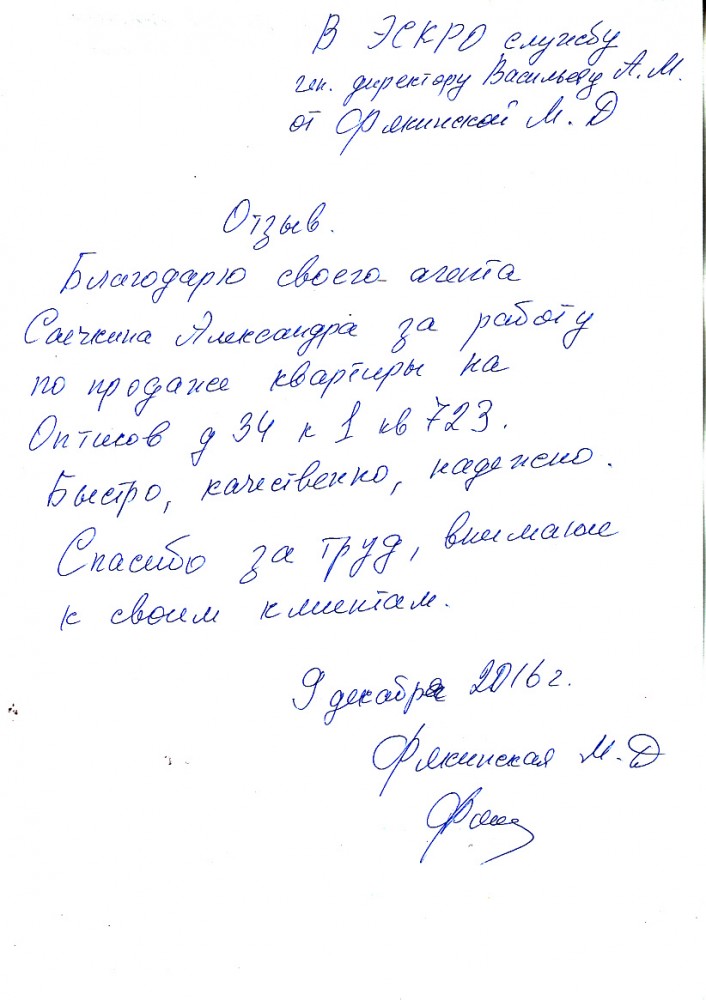 В ЭСКРО службу
ген. директору Васильеву А.М.
от Фрякинской М.Д
Отзыв.
Благодарю своего агента
Саечкина Александра за работу
по продаже квартиры на
Оптиков д 34 к 1 кв 723.
Быстро, качественно, надежно.
Спасибо за труд, внимание
к своим клиентам.
9 декабря 2016г.
Фрякинская М.Д